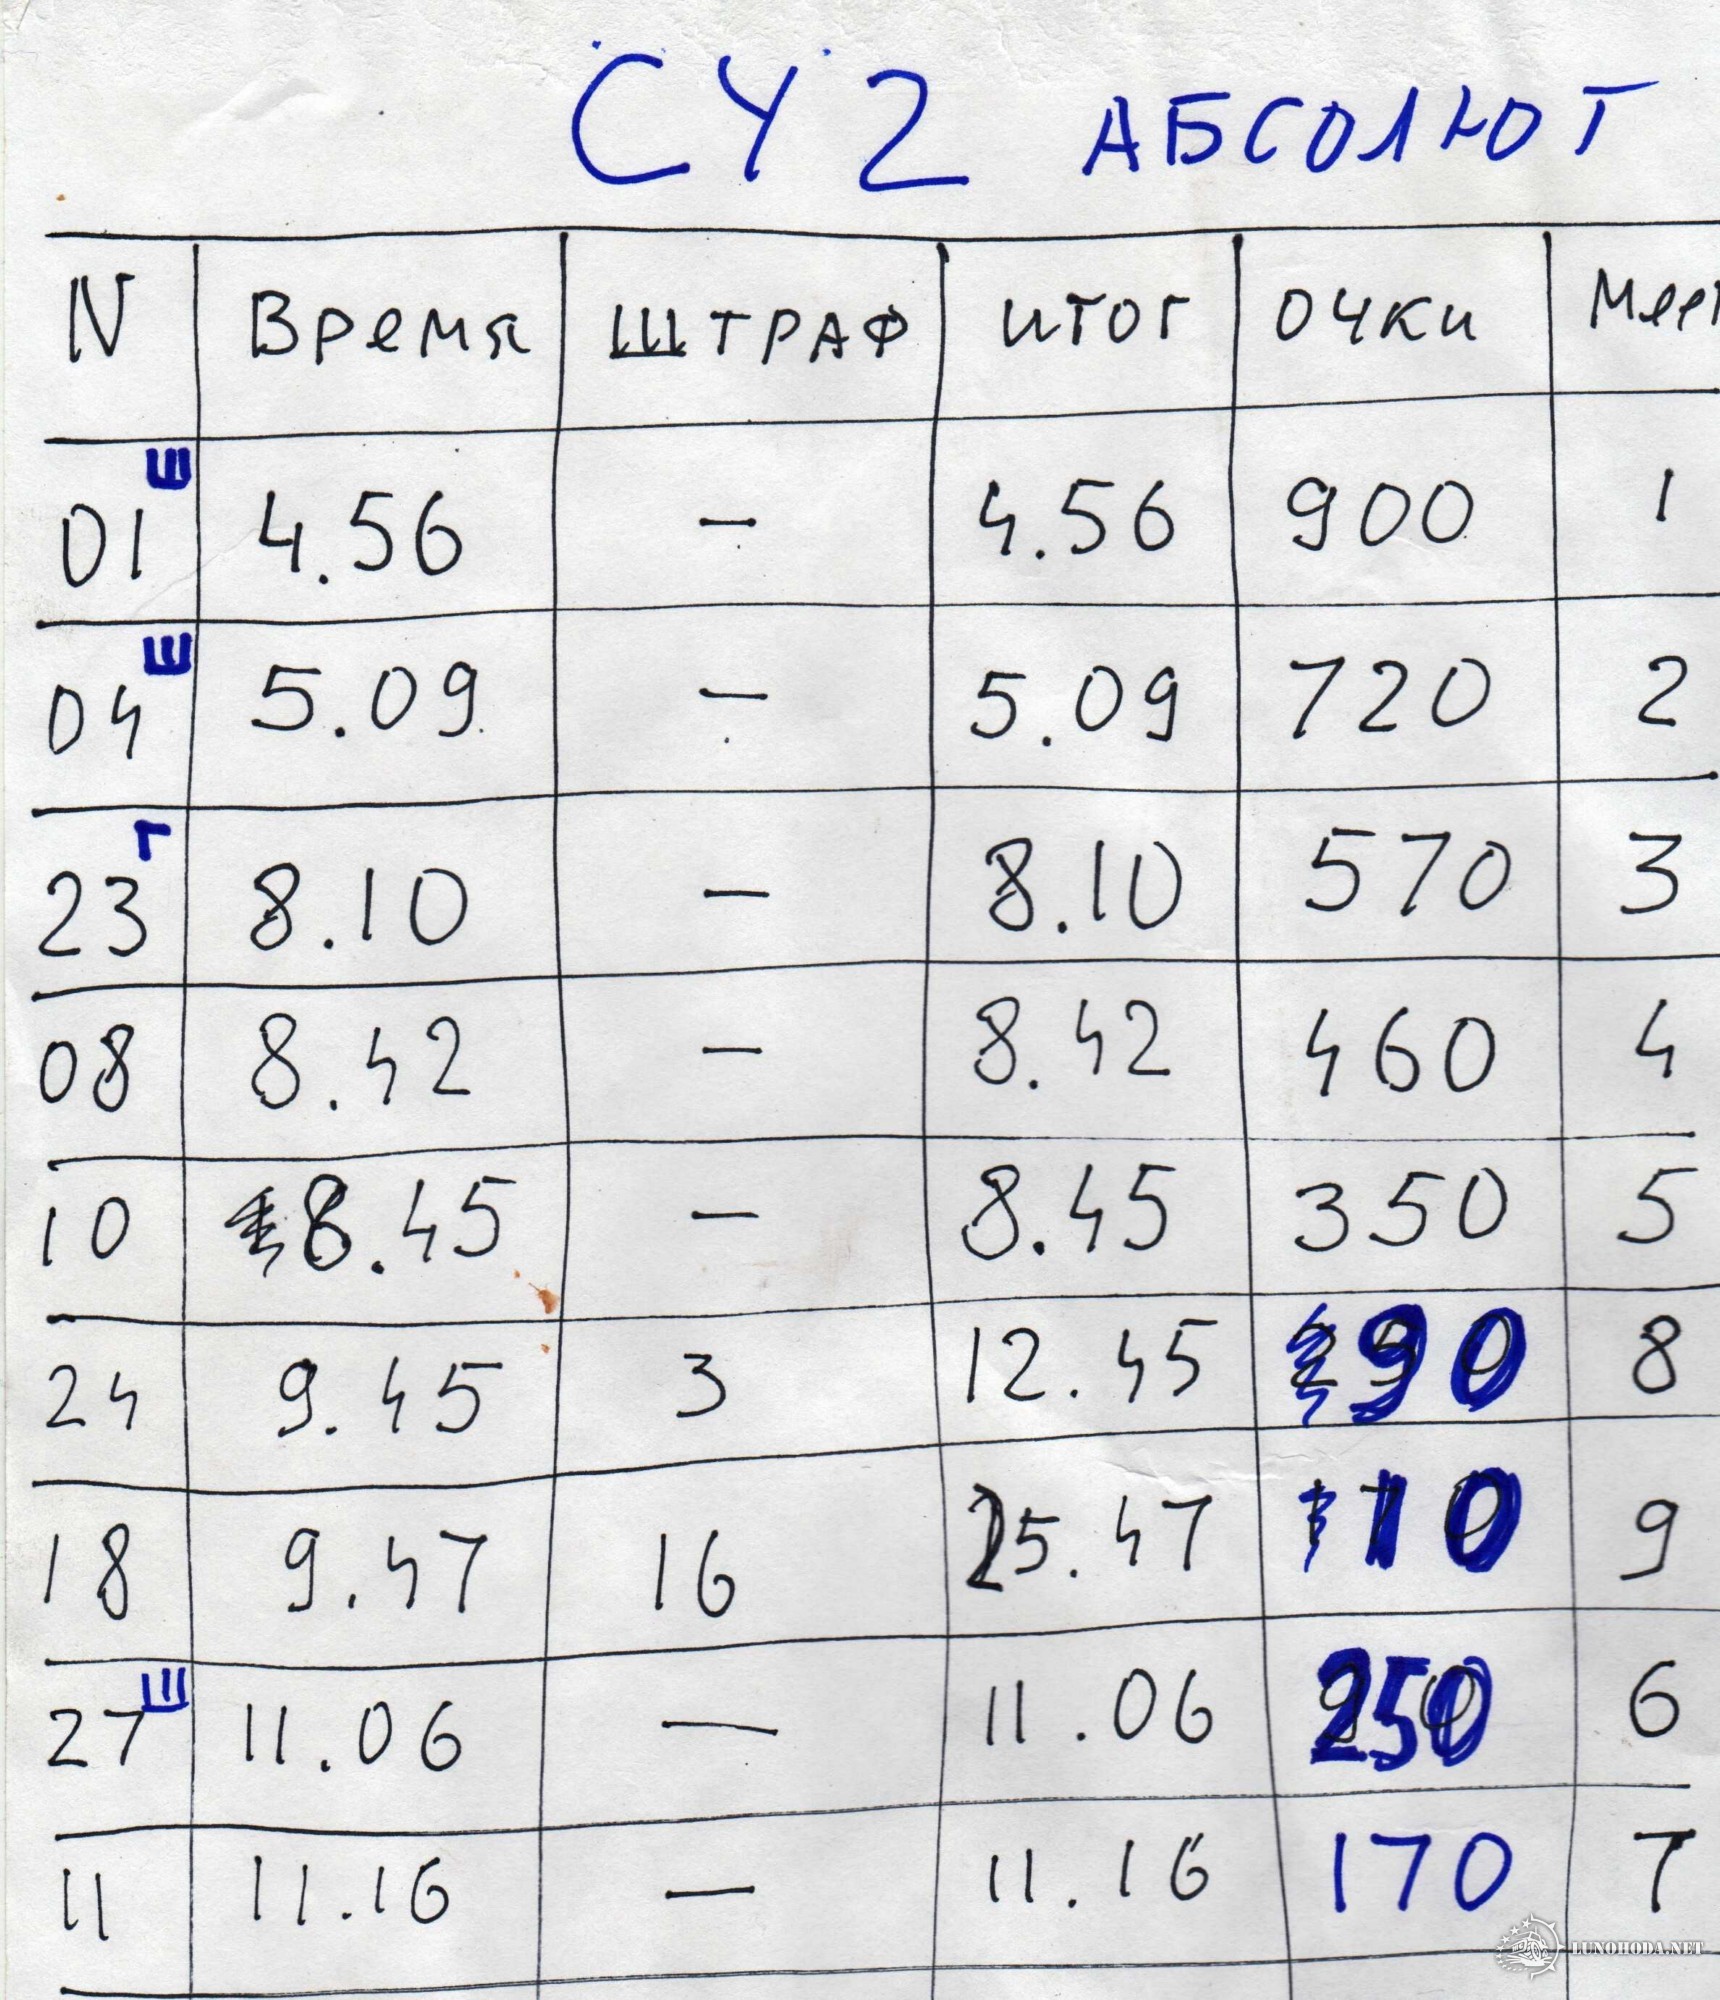 СУ 2 АБСОЛЮТ
N Время ШТРАФ ИТОГ ОЧКИ Мест
01 Ш 4.56 — 4.56 900 1
04 Ш 5.09 — 5.09 720 2
23 Г 8.10 — 8.10 570 3
08 8.42 — 8.42 460 4
10 8.45 — 8.45 350 5
24 9.45 3 12.45 90 8
18 9.47 16 25.47 10 9
27 Ш 11.06 — 11.06 250 6
11 11.16 — 11.16 170 7
LUNOHODA.NET